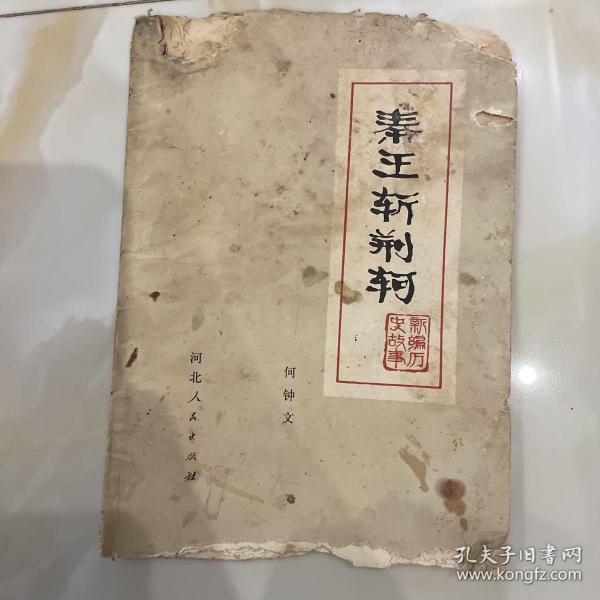 秦王斩荆轲
新编历
史故事
何钟文
河北人民出版社
孔夫子旧书网
www.kongfz.com